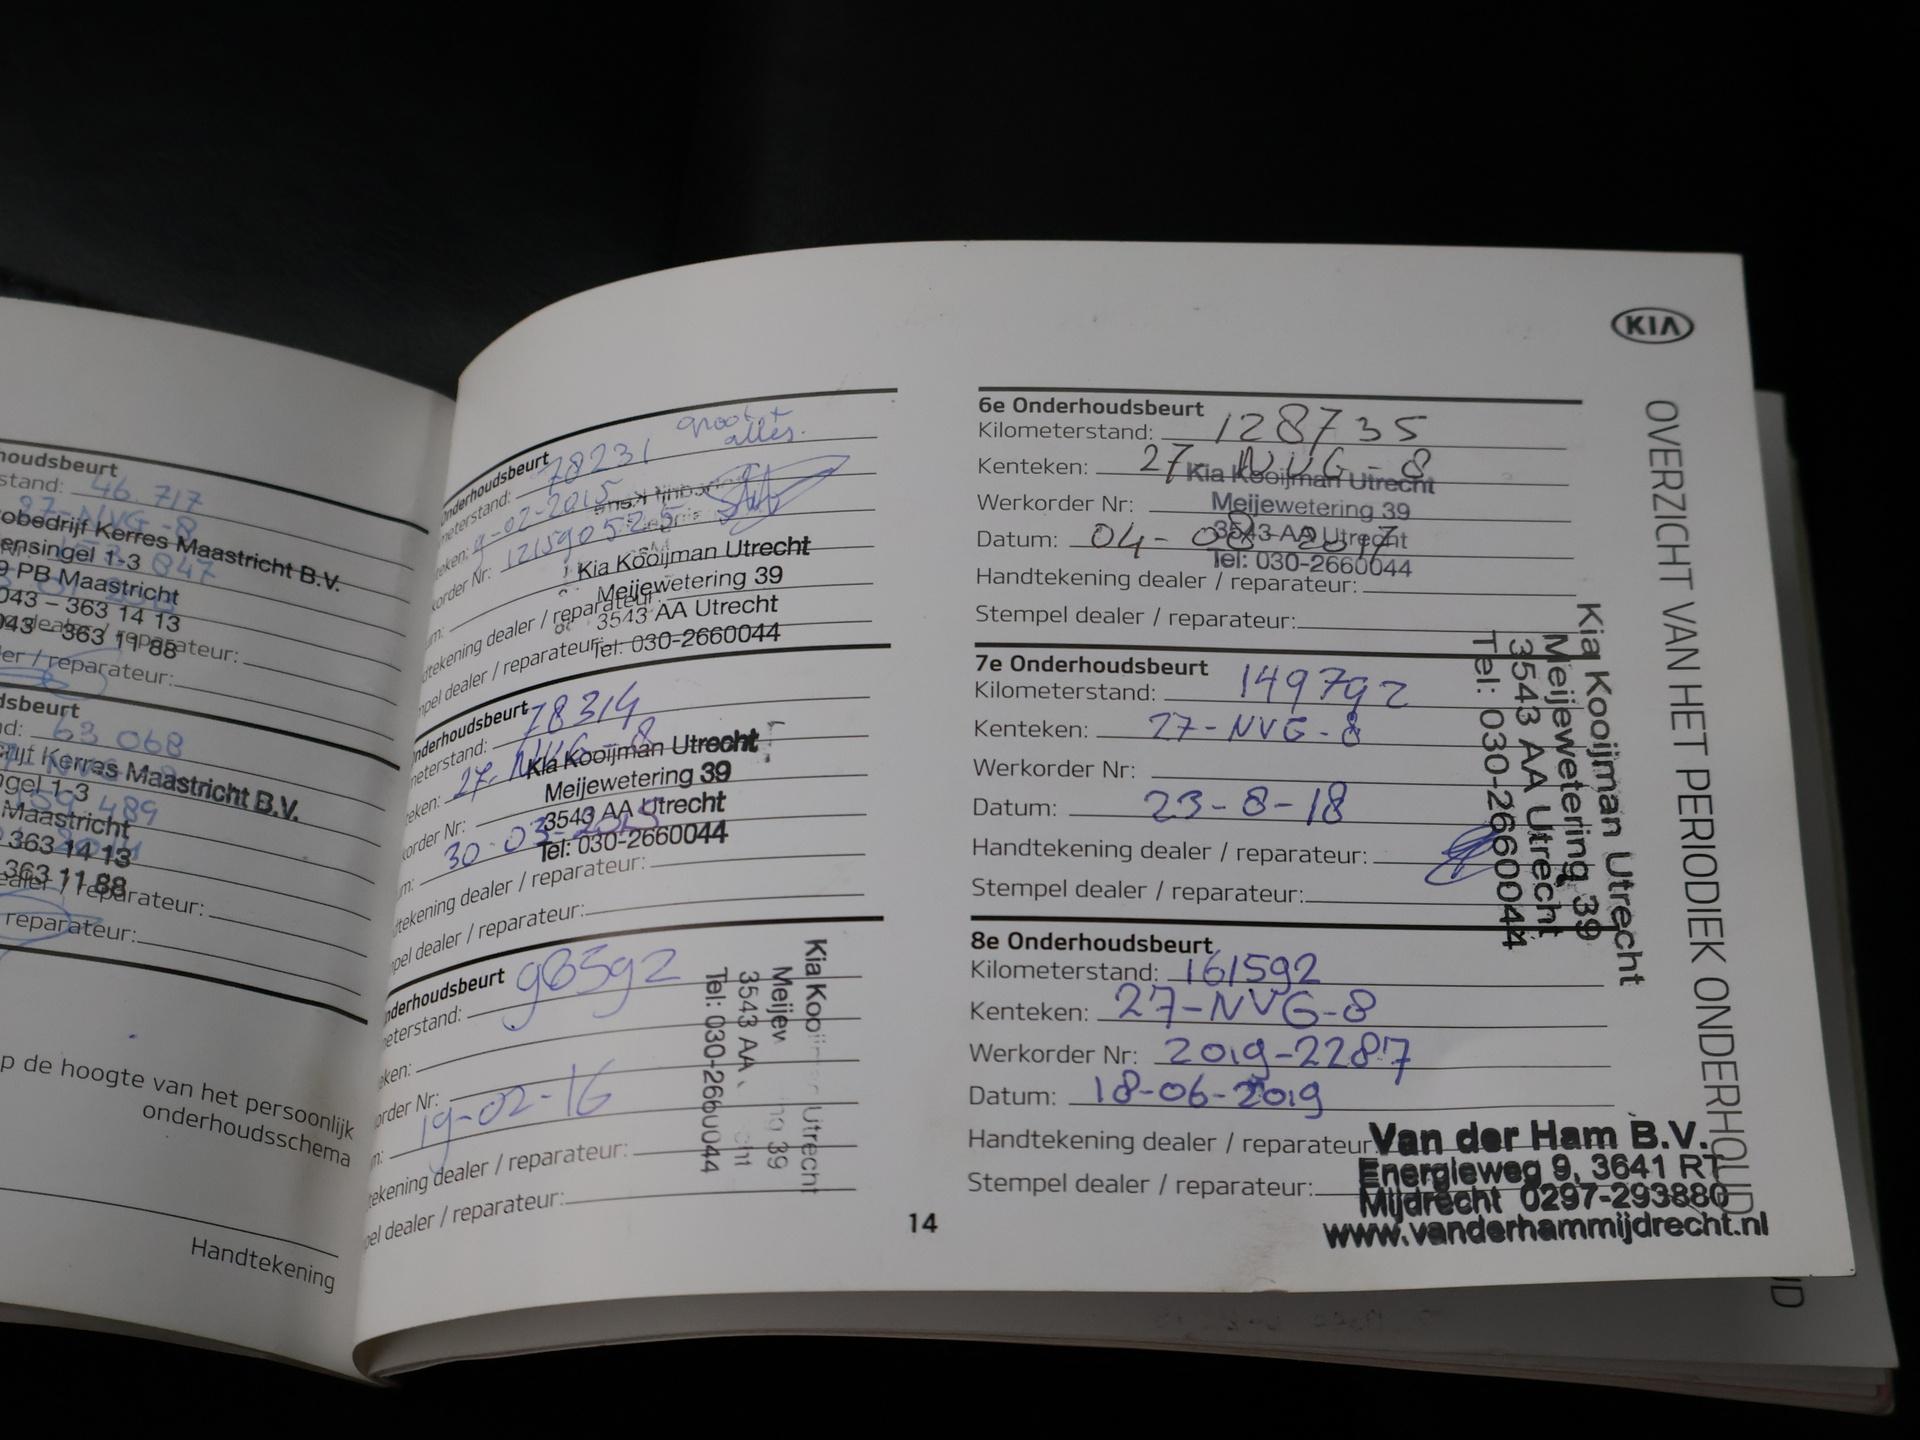 houdsbeurt
stand: 46.717
27-NVG-8
obedrijf Kerres Maastricht B.V.
ensingel 1-3
847
9 PB Maastricht
043 – 363 14 13
043 – 363 11 88
dealer / reparateur:
er / reparateur:
dsbeurt
nd: 63 068
rijf Kerres Maastricht B.V.
gel 1-3
489
Maastricht
363 14 13
363 11 88
ealer / reparateur:
reparateur:
p de hoogte van het persoonlijk
onderhoudsschema
Handtekening
Onderhoudsbeurt
meterstand: 78231
alles.
teken: 9-02-2015
order Nr: 121590525
Kia Kooijman Utrecht
Meijewetering 39
3543 AA Utrecht
Tel: 030-2660044
um:
dtekening dealer / reparateur:
mpel dealer / reparateur:
Onderhoudsbeurt
meterstand: 78314
teken: 27-NVG-8
Kia Kooijman Utrecht
Meijewetering 39
3543 AA Utrecht
Tel: 030-2660044
order Nr:
um: 30-03-2015
dtekening dealer / reparateur:
pel dealer / reparateur:
nderhoudsbeurt
neterstand: 98592
eken:
order Nr:
m: 19-02-16
tekening dealer / reparateur:
pel dealer / reparateur:
Kia Kooijman Utrecht
Meijew ing 39
3543 AA cht
Tel: 030-2660044
14
KIA
OVERZICHT VAN HET PERIODIEK ONDERHOUD
6e Onderhoudsbeurt
Kilometerstand: 128735
Kenteken: 27-NVG-8
Kia Kooijman Utrecht
Meijewetering 39
3543 AA Utrecht
Tel: 030-2660044
Werkorder Nr:
Datum: 04-08-2017
Handtekening dealer / reparateur:
Stempel dealer / reparateur:
7e Onderhoudsbeurt
Kilometerstand: 149792
Kenteken: 27-NVG-8
Werkorder Nr:
Datum: 23-8-18
Handtekening dealer / reparateur:
Stempel dealer / reparateur:
Kia Kooijman Utrecht
Meijewetering 39
3543 AA Utrecht
Tel: 030-2660044
8e Onderhoudsbeurt
Kilometerstand: 161592
Kenteken: 27-NVG-8
Werkorder Nr: 2019-2287
Datum: 18-06-2019
Handtekening dealer / reparateur:
Stempel dealer / reparateur:
Van der Ham B.V.
Energieweg 9, 3641 RT
Mijdrecht 0297-293880
www.vanderhammijdrecht.nl
ID